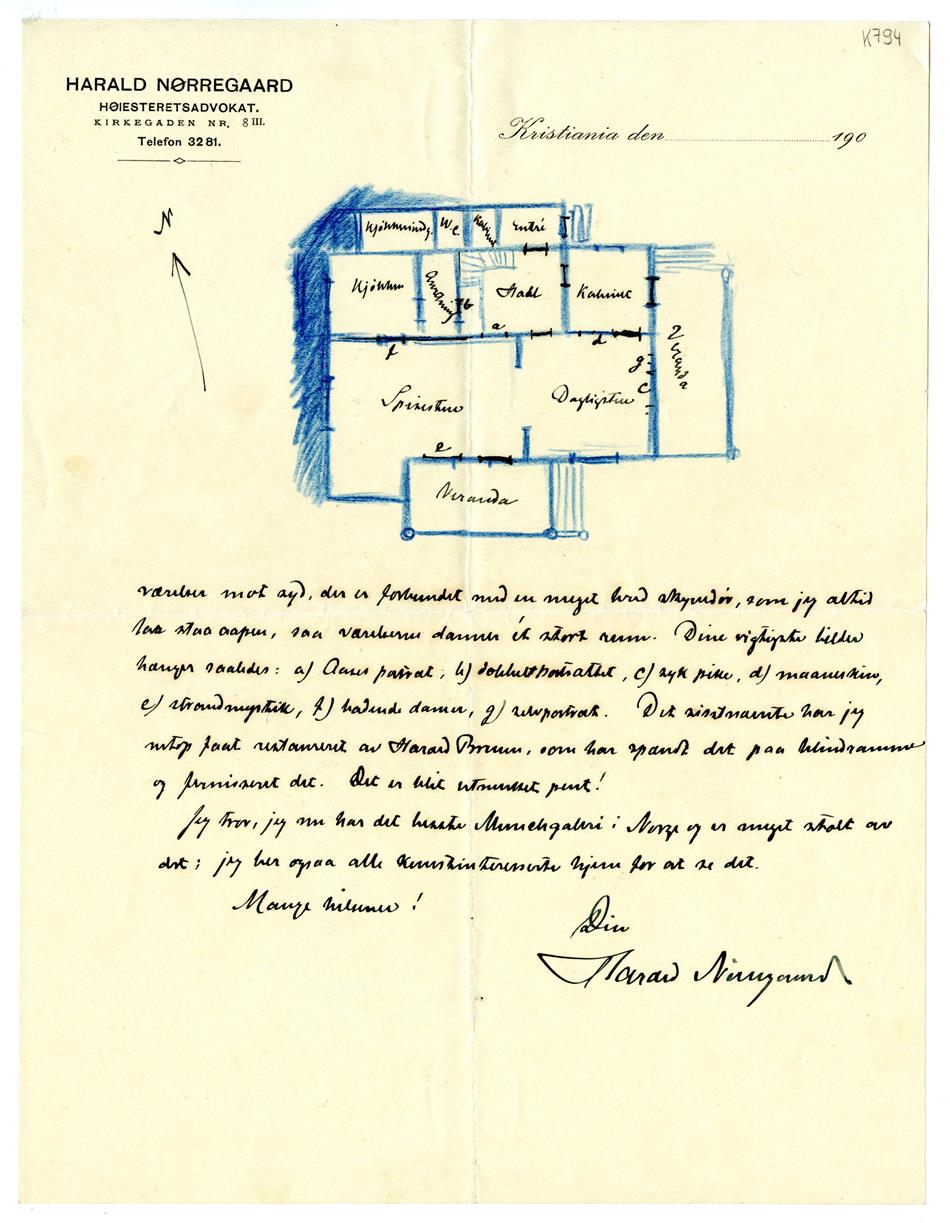 K794
HARALD NØRREGAARD
HØIESTERETSADVOKAT.
KIRKEGADEN NR. 8 III.
Telefon 3281.
Kristiania den 190
N
W.C.
Entré
Kjøkken
Anretning
b
Hall
Kabinet
a
d
f
g
c
Veranda
Spisestue
Dagligstue
e
Veranda
værelser mot syd, der er forbundet med en meget bred skyvedør, som jeg altid
lar staa aapen, saa værelserne danner ét stort rum. Dine vigtigste billeder
hænger saaledes: a) Aases portræt, b) dobbeltportrættet, c) syk pike, d) maaneskin,
e) strandmystik, f) badende damer, g) selvportræt. Det sisstnævnte har jeg
netop faat restaureret av Harald Brun, som har spændt det paa blindramme
og fernisseret det. Det er blit utmerket pent!
Jeg tror, jeg nu har det bedste Munchgaleri i Norge og er meget stolt av
det; jeg ber ogsaa alle kunstinteresserte hjem for at se det.
Mange hilsener!
Din
Harald Nørregaard